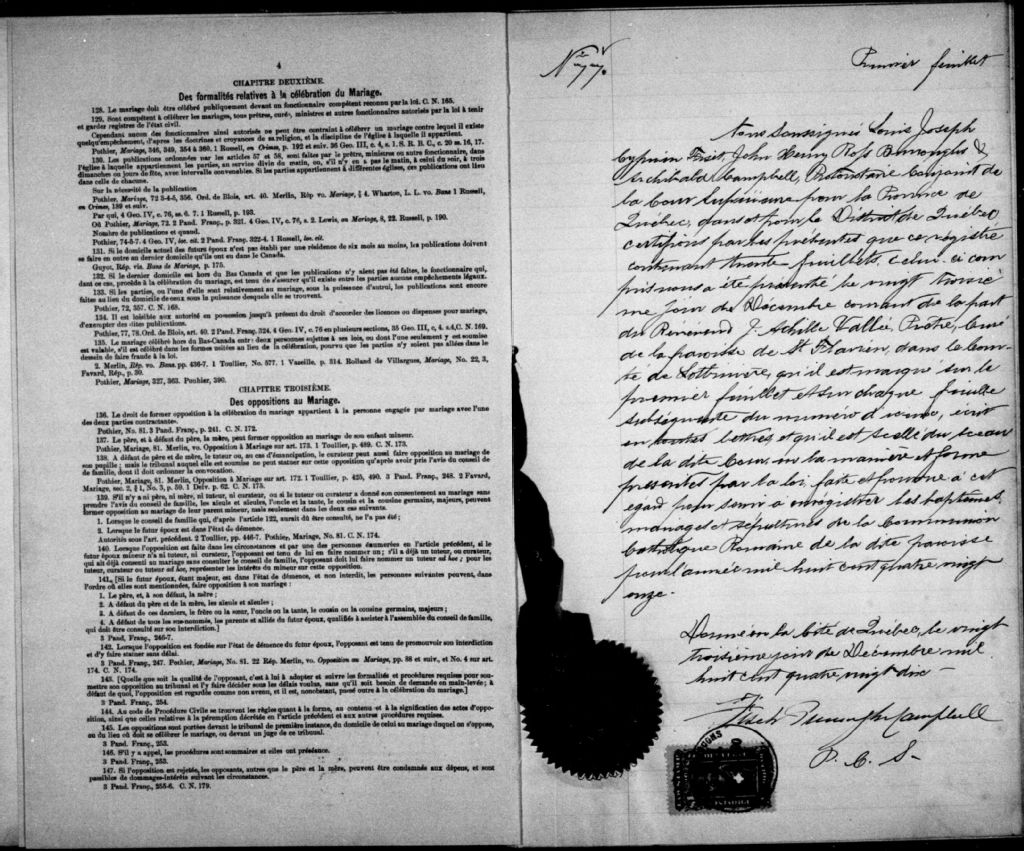 4
CHAPITRE DEUXIÈME.
Des formalités relatives à la célébration du Mariage.
128. Le mariage doit être célébré publiquement devant un fonctionnaire compétent reconnu par la loi. C. N. 165.
129. Sont compétents à célébrer les mariages, tous prêtres, curés, ministres et autres fonctionnaires autorisés par la loi à tenir
et garder registres de l'état civil.
Cependant aucun des fonctionnaires ainsi autorisés ne peut être contraint à célébrer un mariage contre lequel il existe
quelqu'empêchement, d'après les doctrines et croyances de sa religion, et la discipline de l'église à laquelle il appartient.
Pothier, Mariage, 346, 349, 354 à 360. 1 Russell, on Crimes, p. 192 et suiv. 36 Geo. III, c. 4, s. 1. S. R. B. C., c. 20 ss. 16, 17.
130. Les publications ordonnées par les articles 57 et 58, sont faites par le prêtre, ministre ou autre fonctionnaire, dans
l'église à laquelle appartiennent les parties, au service divin du matin, ou, s'il n'y en a pas le matin, à celui du soir, à trois
dimanches ou jours de fête, avec intervalles convenables. Si les parties appartiennent à différentes églises, ces publications ont lieu
dans celle de chacune.
Sur la nécessité de la publication
Pothier, Mariage, 72 3-4-5, 356. Ord. de Blois, art. 40. Merlin, Rép vo. Mariage, § 4. Wharton, L. L. vo. Bans 1 Russell,
on Crimes, 189 et suiv.
Par qui, 4 Geo. IV, c. 76, ss. 6. 7. 1 Russell, p. 193.
Où Pothier, Mariage, 72. 2 Pand. Franç., p. 321. 4 Geo. IV, c. 76, s. 2. Lewis, on Mariage, 8, 22. Russell, p. 190.
Nombre de publications et quand.
Pothier, 74-5-7. 4 Geo. IV, loc. cit. 2 Pand. Franç. 322-4. 1 Russell, loc. cit.
131. Si le domicile actuel des futurs époux n'est pas établi par une résidence de six mois au moins, les publications doivent
se faire en outre au dernier domicile qu'ils ont eu dans le Canada.
Guyot, Rép. vis. Bans de Mariage, p. 175.
132. Si le dernier domicile est hors du Bas Canada et que les publications n'y aient pas été faites, le fonctionnaire qui,
dans ce cas, procède à la célébration du mariage, est tenu de s'assurer qu'il existe entre les parties aucuns empêchements légaux.
133. Si les parties, ou l'une d'elles sont relativement au mariage, sous la puissance d'autrui, les publications sont encore
faites au lieu du domicile de ceux sous la puissance desquels elle se trouvent.
Pothier, 72, 357. C. N. 168.
134. Il est loisible aux autorité en possession jusqu'à présent du droit d'accorder des licences ou dispenses pour mariage,
d'exempter des dites publications.
Pothier, 77, 78. Ord. de Blois, art. 40. 2 Pand. Franç. 324. 4 Geo. IV, c. 76 en plusieurs sections, 35 Geo. III, c. 4. s.4, C. N. 169.
135. Le mariage célébré hors du Bas-Canada entre deux personnes sujettes à ses lois, ou dont l'une seulement y est soumise
est valable, s'il est célébré dans les formes usitées au lieu de la célébration, pourvu que les parties n'y soient pas allées dans le
dessein de faire fraude à la loi.
2. Merlin, Rép. vo. Bans. pp. 436-7. 1 Toullier, No. 577. 1 Vazeille. p. 314. Rolland de Villargues, Mariage, No. 22, 3,
Favard, Rép., p. 30.
Pothier, Mariage, 327, 363. Pouhier, 390.
CHAPITRE TROISIÈME.
Des oppositions au Mariage.
136. Le droit de former opposition à la célébration du mariage appartient à la personne engagée par mariage avec l'une
des deux parties contractantes.
Pothier, No. 81. 3 Pand. Franç., p. 241. C. N. 172.
137. Le père, et à défaut du père, la mère, peut former opposition au mariage de son enfant mineur.
Pothier, Mariage, 81. Merlin, vo. Opposition à Mariage sur art. 173. 1 Toullier, p. 489. C. N. 173.
138. A défaut de père et de mère, le tuteur ou, au cas d'émancipation, le curateur peut aussi faire opposition au mariage de
son pupille ; mais le tribunal auquel elle est soumise ne peut statuer sur cette opposition qu'après avoir pris l'avis du conseil de
famille, dont il doit ordonner la convocation.
Pothier, Mariage, 81. Merlin, Opposition à Mariage sur art. 172. 1 Toullier, p. 425, 490. 3 Pand. Franç., 248. 2 Favard,
Mariage, sec. 2, § 1, No. 3, p. 59. 1 Delv. p. 62. C. N. 175.
139. S'il n'y a ni père, ni mère, ni tuteur, ni curateur, ou si le tuteur ou curateur a donné son consentement au mariage sans
prendre l'avis du conseil de famille, les aïeuls et aïeules, l'oncle et la tante, le cousin et la cousine germains, majeurs, peuvent
former opposition au mariage de leur parent mineur, mais seulement dans les deux cas suivants.
1. Lorsque le conseil de famille qui, d'après l'article 122, aurait dû être consulté, ne l'a pas été ;
2. Lorsque le futur époux est dans l'état de démence.
Autorités sous l'art. précédent. 2 Toullier, pp. 446-7. Pothier, Mariage, No. 81. C. N. 174.
140. Lorsque l'opposition est faite dans les circonstances et par une des personnes énumérées en l'article précédent, si le
futur époux mineur n'a ni tuteur, ni curateur, l'opposant est tenu de lui en faire nommer un ; s'il a déjà un tuteur, ou curateur,
qui ait déjà consenti au mariage sans consulter le conseil de famille, l'opposant doit lui faire nommer un tuteur ad hoc ; pour les
tuteur, curateur ou tuteur ad hoc, représenter les intérêts du mineur sur cette opposition.
141. [Si le futur époux, étant majeur, est dans l'état de démence, et non interdit, les personnes suivantes peuvent, dans
l'ordre où elles sont mentionnées, faire opposition à son mariage :
1. Le père, et, à son défaut, la mère ;
2. A défaut du père et de la mère, les aïeuls et aïeules ;
3. A défaut de ces derniers, le frère ou la sœur, l'oncle ou la tante, le cousin ou la cousine germains, majeurs ;
4. A défaut de tous les sus-nommés, les parents et alliés du futur époux, qualifiés à assister à l'assemblée du conseil de famille,
qui doit être consulté sur son interdiction.]
3 Pand. Franç., 246-7.
142. Lorsque l'opposition est fondée sur l'état de démence du futur époux, l'opposant est tenu de promouvoir son interdiction
et d'y faire statuer sans délai.
3 Pand. Franç., 247. Pothier, Mariage, No. 81. 22 Rép. Merlin, vo. Opposition au Mariage, pp. 88 et suiv., et No. 4 sur art.
174. C. N. 174.
143. [Quelle que soit la qualité de l'opposant, c'est à lui à adopter et suivre les formalités et procédures requises pour soumettre
son opposition au tribunal et l'y faire décider sous les délais voulus, sans qu'il soit besoin de demande en main-levée ; à
défaut de quoi, l'opposition est regardée comme non avenu, et il est, nonobstant, passé outre à la célébration du mariage.]
3 Pand. Franç., 254.
144. Au code de Procédure Civile se trouvent les règles quant à la forme, au contenu et à la signification des actes d'opposition,
ainsi que celles relatives à la péremption décrétée en l'article précédent et aux autres procédures requises.
145. Les oppositions sont portées devant le tribunal de première instance, du domicile de celui au mariage duquel on s'oppose,
ou du lieu où doit se célébrer le mariage, ou devant un juge de ce tribunal.
3 Pand. Franç., 253.
146. S'il y a appel, les procédures sont sommaires et elles ont préséance.
3 Pand. Franç., 253.
147. Si l'opposition est rejetée, les opposants, autres que le père et la mère, peuvent être condamnés aux dépens, et sont
passibles de dommages-intérêts suivant les circonstances.
3 Pand. Franç., 255-6. C. N. 179.
Premier feuillet
Nous Soussignés Louis Joseph
Cyprien Fiset, John Henry Ross Burroughs &
Archibald Campbell, Protonotaire Conjoint de
la Cour Supérieure pour la Province de
Québec, dans et pour le District de Québec
certifions par les présentes que ce registre
contenant trente feuillets, celui-ci com
pris nous a été présenté le vingt troisiè
me jour de Décembre courant de la part
du Reverend J. Achille Vallée, Prêtre, Curé
de la paroisse de St Flavien, dans le Com
té de Lotbinière, qu'il est marqué sur le
premier feuillet et sur chaque feuillet
subséquent du numéro d'icelui, écrit
en toutes lettres, et qu'il est scellé du sceau
de la dite Cour, en la manière et forme
présentes par la loi, faite et pourvue à cet
égard pour servir à enregistrer les baptêmes,
mariages et sépultures de la Communion
Catholique Romaine de la dite paroisse
pour l'année mil huit cent quatre vingt
onze.
Donné en la Cité de Québec, le vingt
troisième jour de Décembre mil
huit cent quatre vingt dix
Fiset Burroughs Campbell
P. C. S.